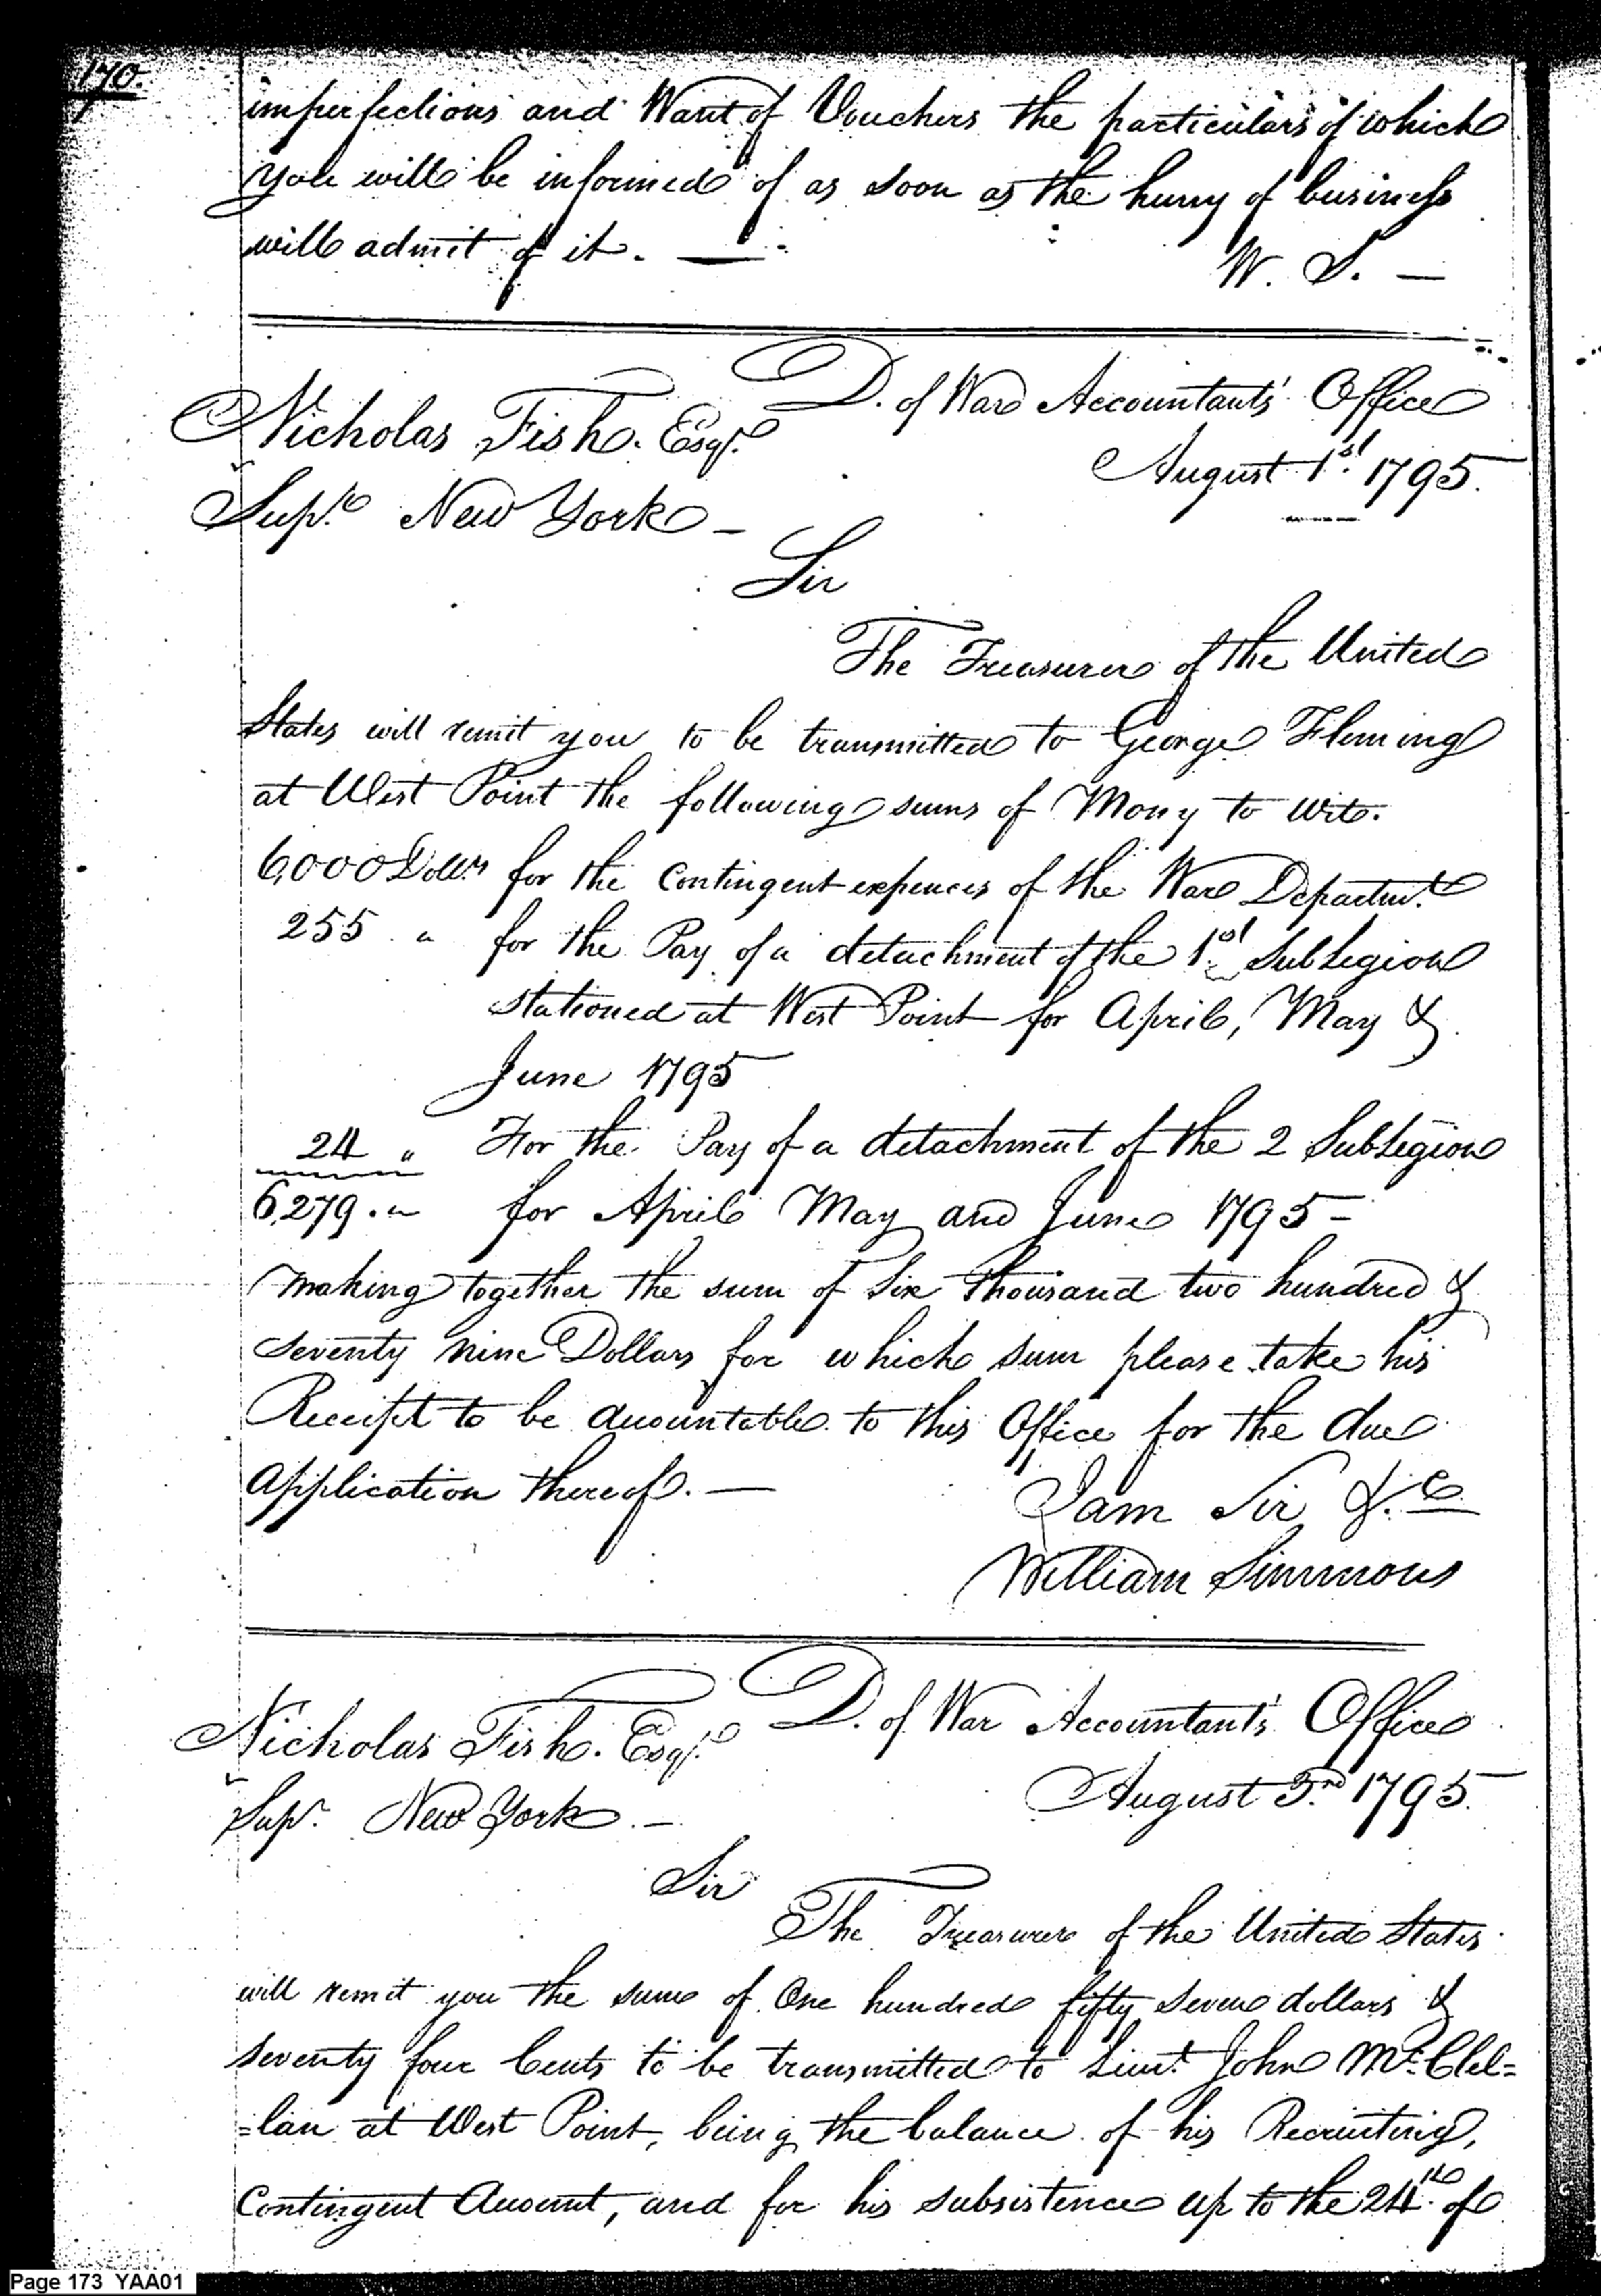 170.
imperfections and Want of Vouchers the particulars of which
you will be informed of as soon as the hurry of business
will admit of it. —
W. S. —
D. of War Accountants' Office
Nicholas Fish. Esqr.
August 1st. 1795.
Supr. New York —
Sir
The Treasurer of the United
States will remit you to be transmitted to George Fleming
at West Point the following sums of Mony to wit.
6,000 Dollrs for the Contingent expences of the War Departmt.
255 " for the Pay of a detachment of the 1st. SubLegion
stationed at West Point for April, May &
June 1795
24 " For the Pay of a detachment of the 2 SubLegion
6,279. " for April May and June 1795 —
making together the sum of Six Thousand two hundred &
seventy nine Dollars for which sum please take his
Receipt to be accountable to this Office for the due
application thereof. —
I am Sir &.c
William Simmons
D. of War Accountant's Office
Nicholas Fish. Esqr.
August 3rd. 1795.
Supr. New York. —
Sir
The Treasurer of the United States
will remit you the sum of One hundred fifty seven dollars &
seventy four Cents to be transmitted to Lieut. John Mc.Clel=
=lan at West Point, being the balance of his Recruiting,
Contingent Account, and for his subsistence up to the 24th. of
Page 173 YAA01